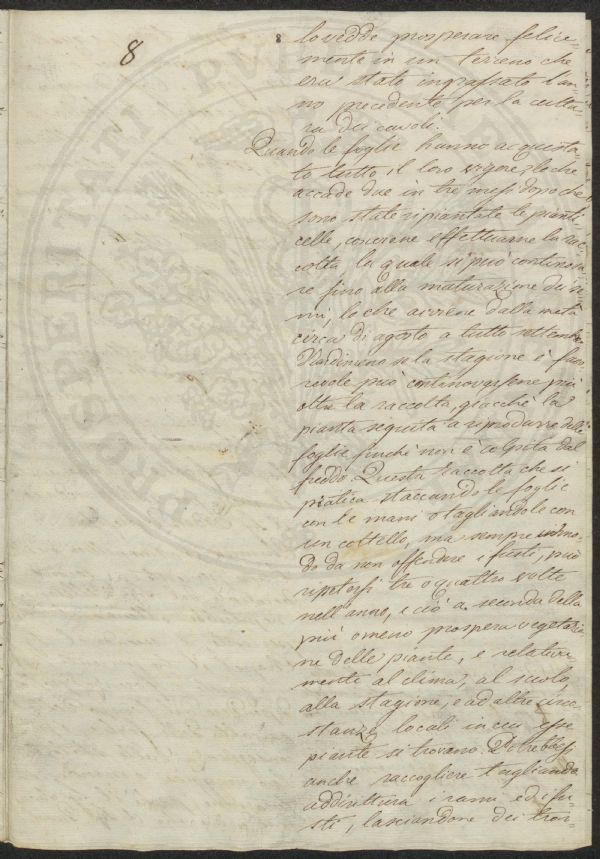 8
8
lo vedde prosperare felice-
mente in un terreno che
era stato ingrassato l'an-
no precedente per la cultu-
ra dei cavoli.
Quando le foglie hanno acquista-
to tutto il loro vigore, lo che
accade due in tre mesi dopo che
sono state ripiantate le pianti
celle, conviene effettuarne la rac-
colta la quale si può continova-
re fino alla maturazione dei se
mi, lo che avviene dalla metà
circa di agosto a tutto settembre
Nondimeno se la stagione è favo-
revole può continovarsene più
oltre la raccolta, giacchè la
pianta seguita a riprodurre delle
foglie finchè non è colpita dal
freddo. Questa raccolta che si
pratica staccando le foglie
con le mani o tagliandole con
un coltello, ma sempre in mo-
do da non offendere i fusti, può
ripetersi tre o quattro volte
nell'anno, e ciò a seconda della
più o meno prospera vegetazio
ne delle piante, e relativa
mente al clima, al suolo,
alla stagione, e ad altre circo-
stanze locali in cui esse
piante si trovano. Potrebbesi
anche raccogliere tagliando
addirittura i rami ed i fu-
sti, lasciandone dei tron-
PROSPERITATI PUBLICAE